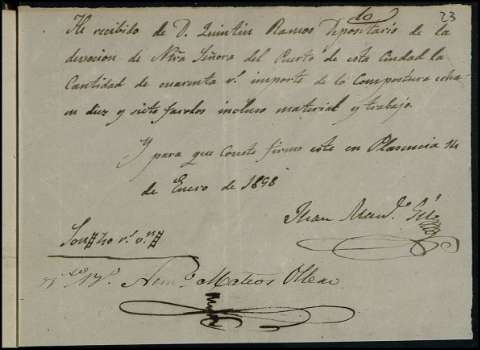 23
He recibido de D. Quintin Ramos Depositario de la
devocion de Ntra Señora del Puerto de esta Ciudad la
Cantidad de cuarenta r.s importe de la Compostura
en diez y siete faroles incluso material y trabajo.
Y para que conste firmo este en Plasencia
de Enero de 1898
Juan Man.l Gil
Son 40 r.s v.n
Mateos